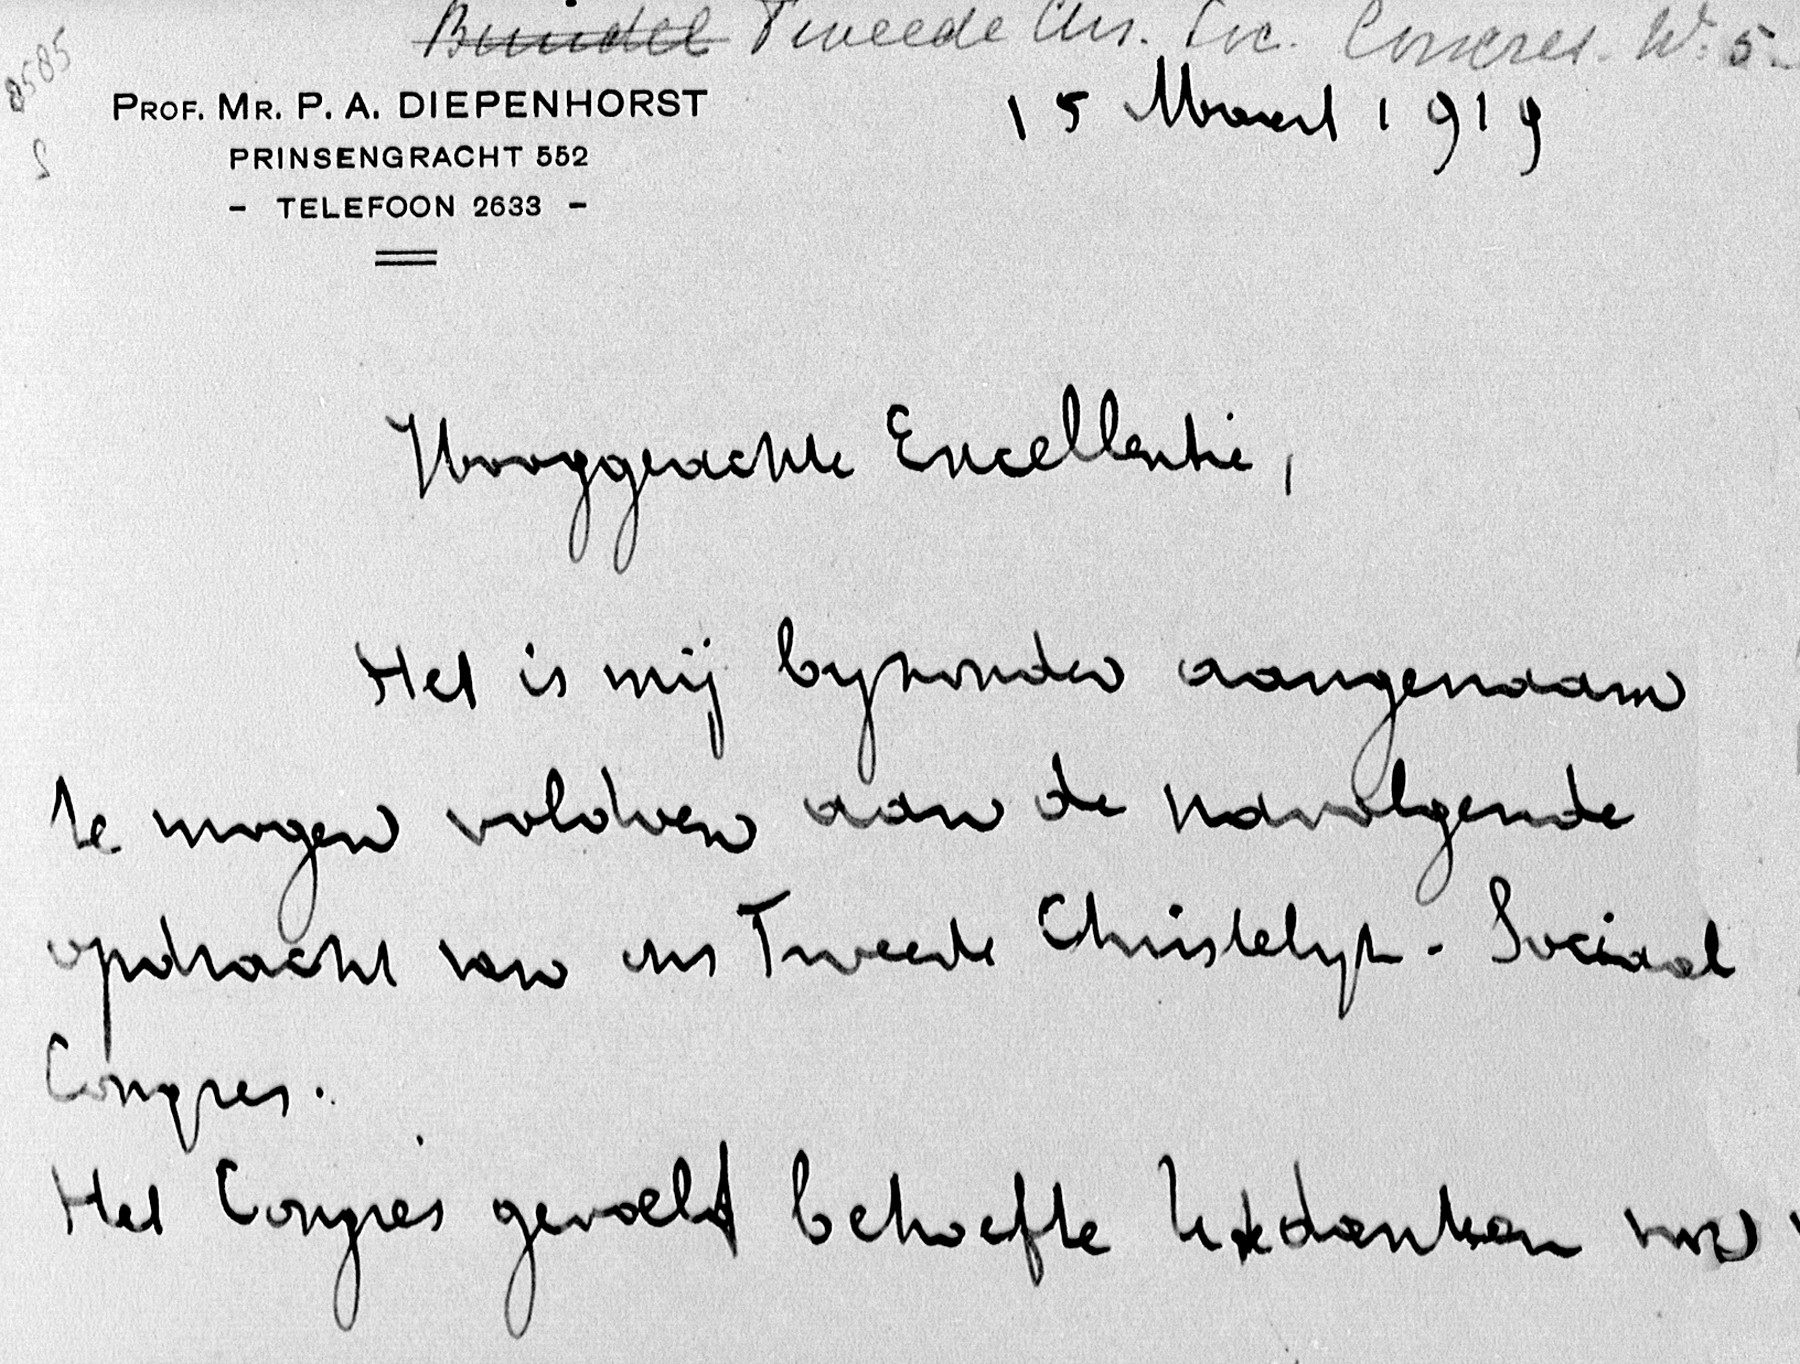 Bundel Tweede Chr. Soc. Congres. W. 5
8585
PROF. MR. P. A. DIEPENHORST
PRINSENGRACHT 552
- TELEFOON 2633 -
15 Maart 1919
Hooggeachte Excellentie,
Het is mij byzonder aangenaam
te mogen voldoen aan de navolgende
opdracht van ons Tweede Christelyk - Sociaal
Congres.
Het Congres gevoelt behoefte U te danken voor